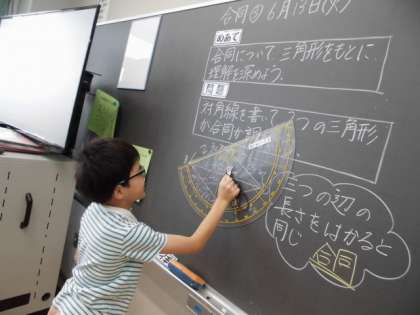 合同② 6月13日(火)
めあて
合同について、三角形をもとに、
理解を深めよう。
対角線を書いて2つの三角形
か合同か調
三つの辺の
長さをはかると
同じ
合同